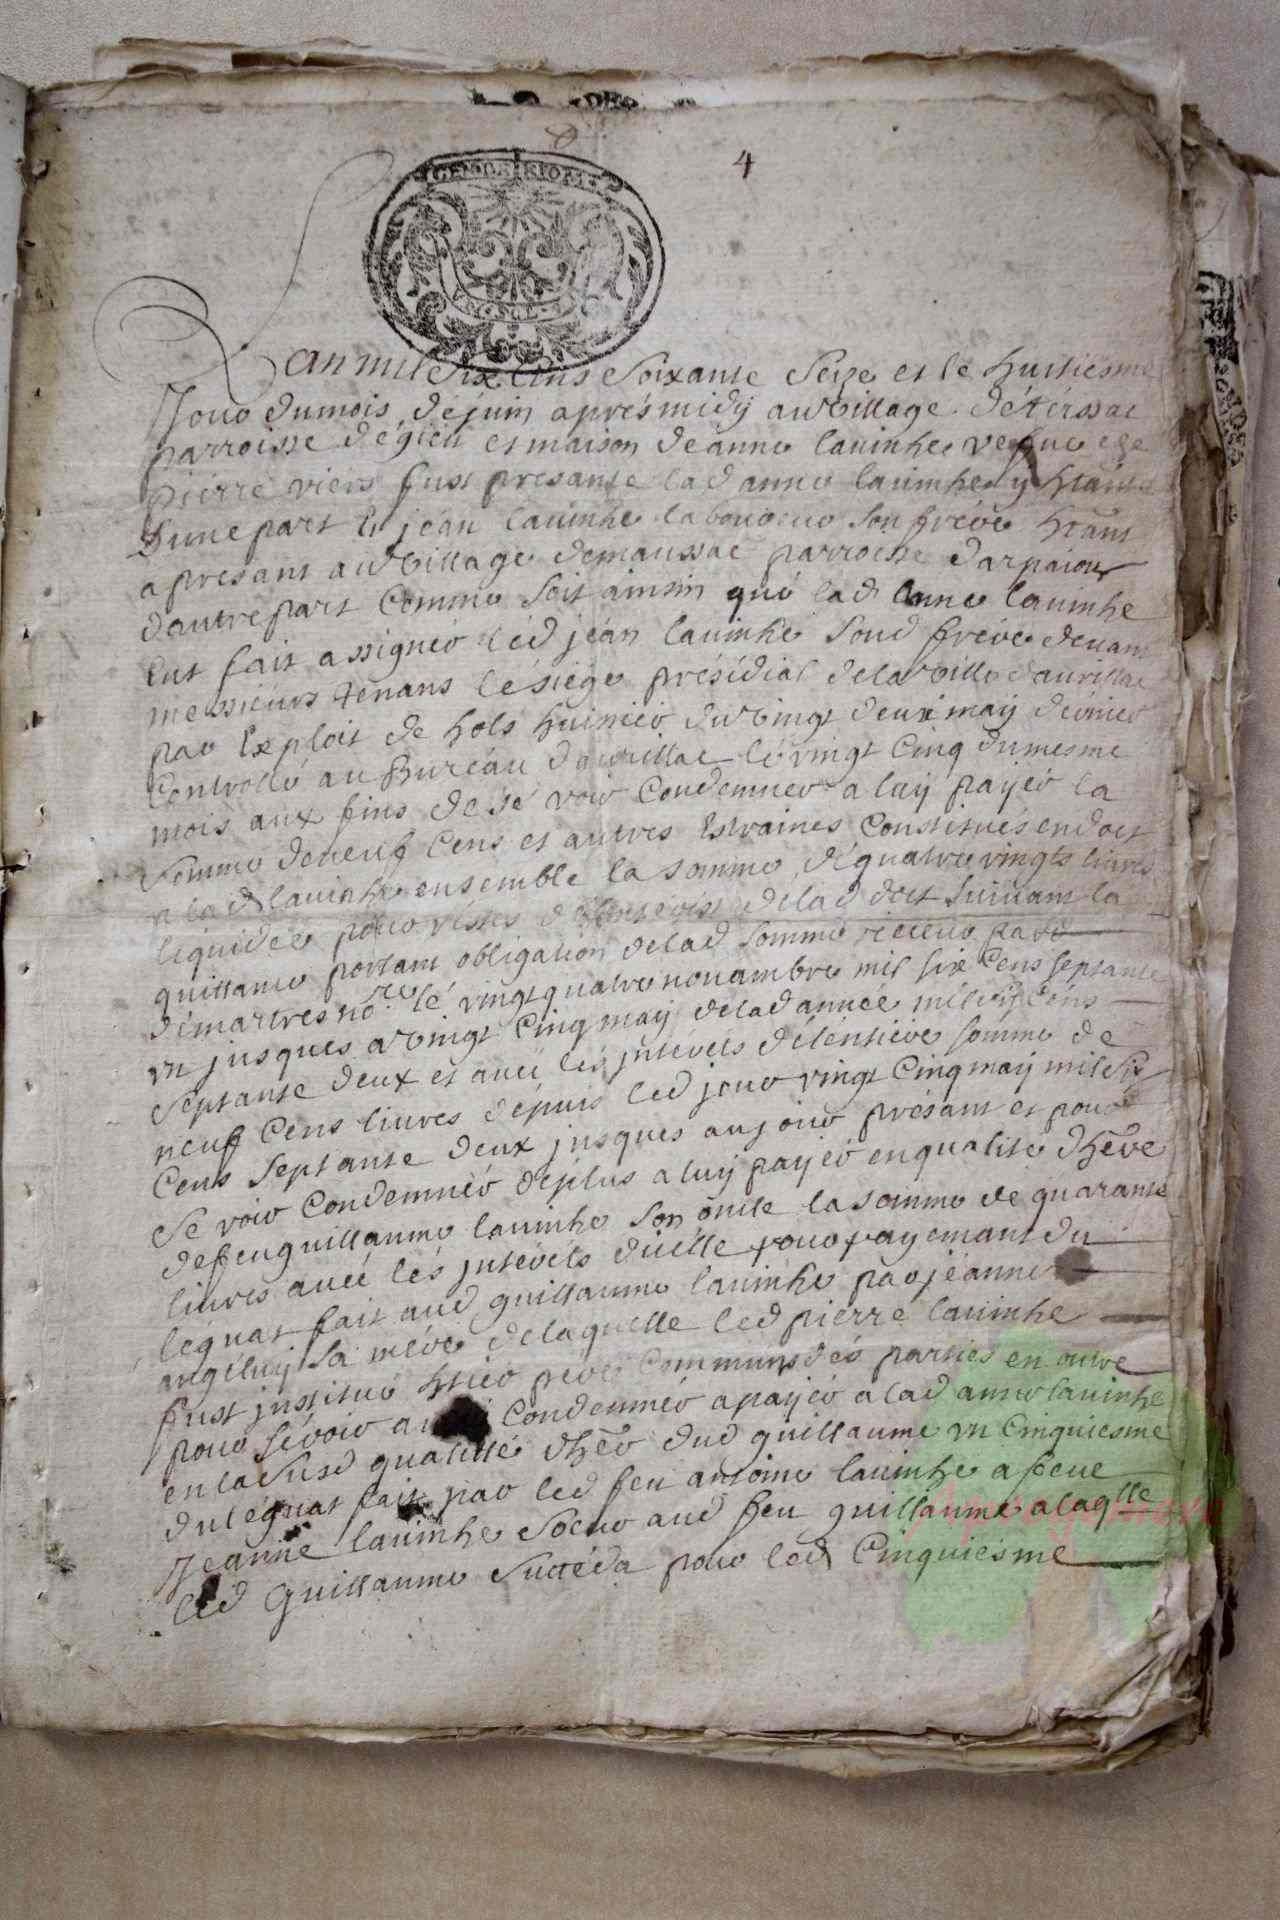 4
GEN DE RIOM
Lan mil six cens soixante seize et le huitiesme
Jour du mois de juin aprés midy au village de térssac
parroisse dégieu et maison de anne lavinhe vefue de
pierre viers fust presante lad anne lavinhe y htante
dune part Et jean lavinhe laboureur son frére htant
a presant au village de maussac parroisse darpaion
dautre part Comme soit ainsin que lad anne lavinhe
Eut fait assignér léd jéan lavinhe sond frére devant
messieurs tenans lé siége présidial de la ville daurillac
par Exploit de hols huissier du vingt deux may dérnier
Controllé au Bureau daurillac lé vingt Cinq du mesme
mois aux fins de sé voir Condemner a luy payér la
somme de neuf Cens et autres Estraines Constitués en dot
a lad lavinhe ensemble la somme dé quatre vingts livres
liquidée pour réstes dintéréts de lad dot suivant la
quittance portant obligation de lad somme receue par
démartres nore lé vingt quatre novambre mil six Cens septante
un jusques a vingt Cinq may de lad année mil six Cens
septante deux et avec les jntéréts délentiére somme de
neuf Cens livres dépuis led jour vingt Cinq may mil six
Cens septante deux jusques aujour présant et pour
se voir Condemnér déplus a luy payér en qualité dhére
de feu guillaume lavinhe son oncle la somme de quarante
livres avec lés jntéréts dicélle pour payemant du
légnat fait aud guillaume lavinhe par jéanne
angéluy sa mére de laquelle led pierre lavinhe
fust jnstitué htier pére Commun dés parties en outre
pour sé voir Condemnér a payér a lad anne lavinhe
en la susd qualitté dhér dud guillaume un Cinquiesme
du légnat fait par led feu antoine lavinhe a feue
Jeanne lavinhe soeur aud feu guillaume a laqlle
léd Guillaume succéda pour led Cinquiesme